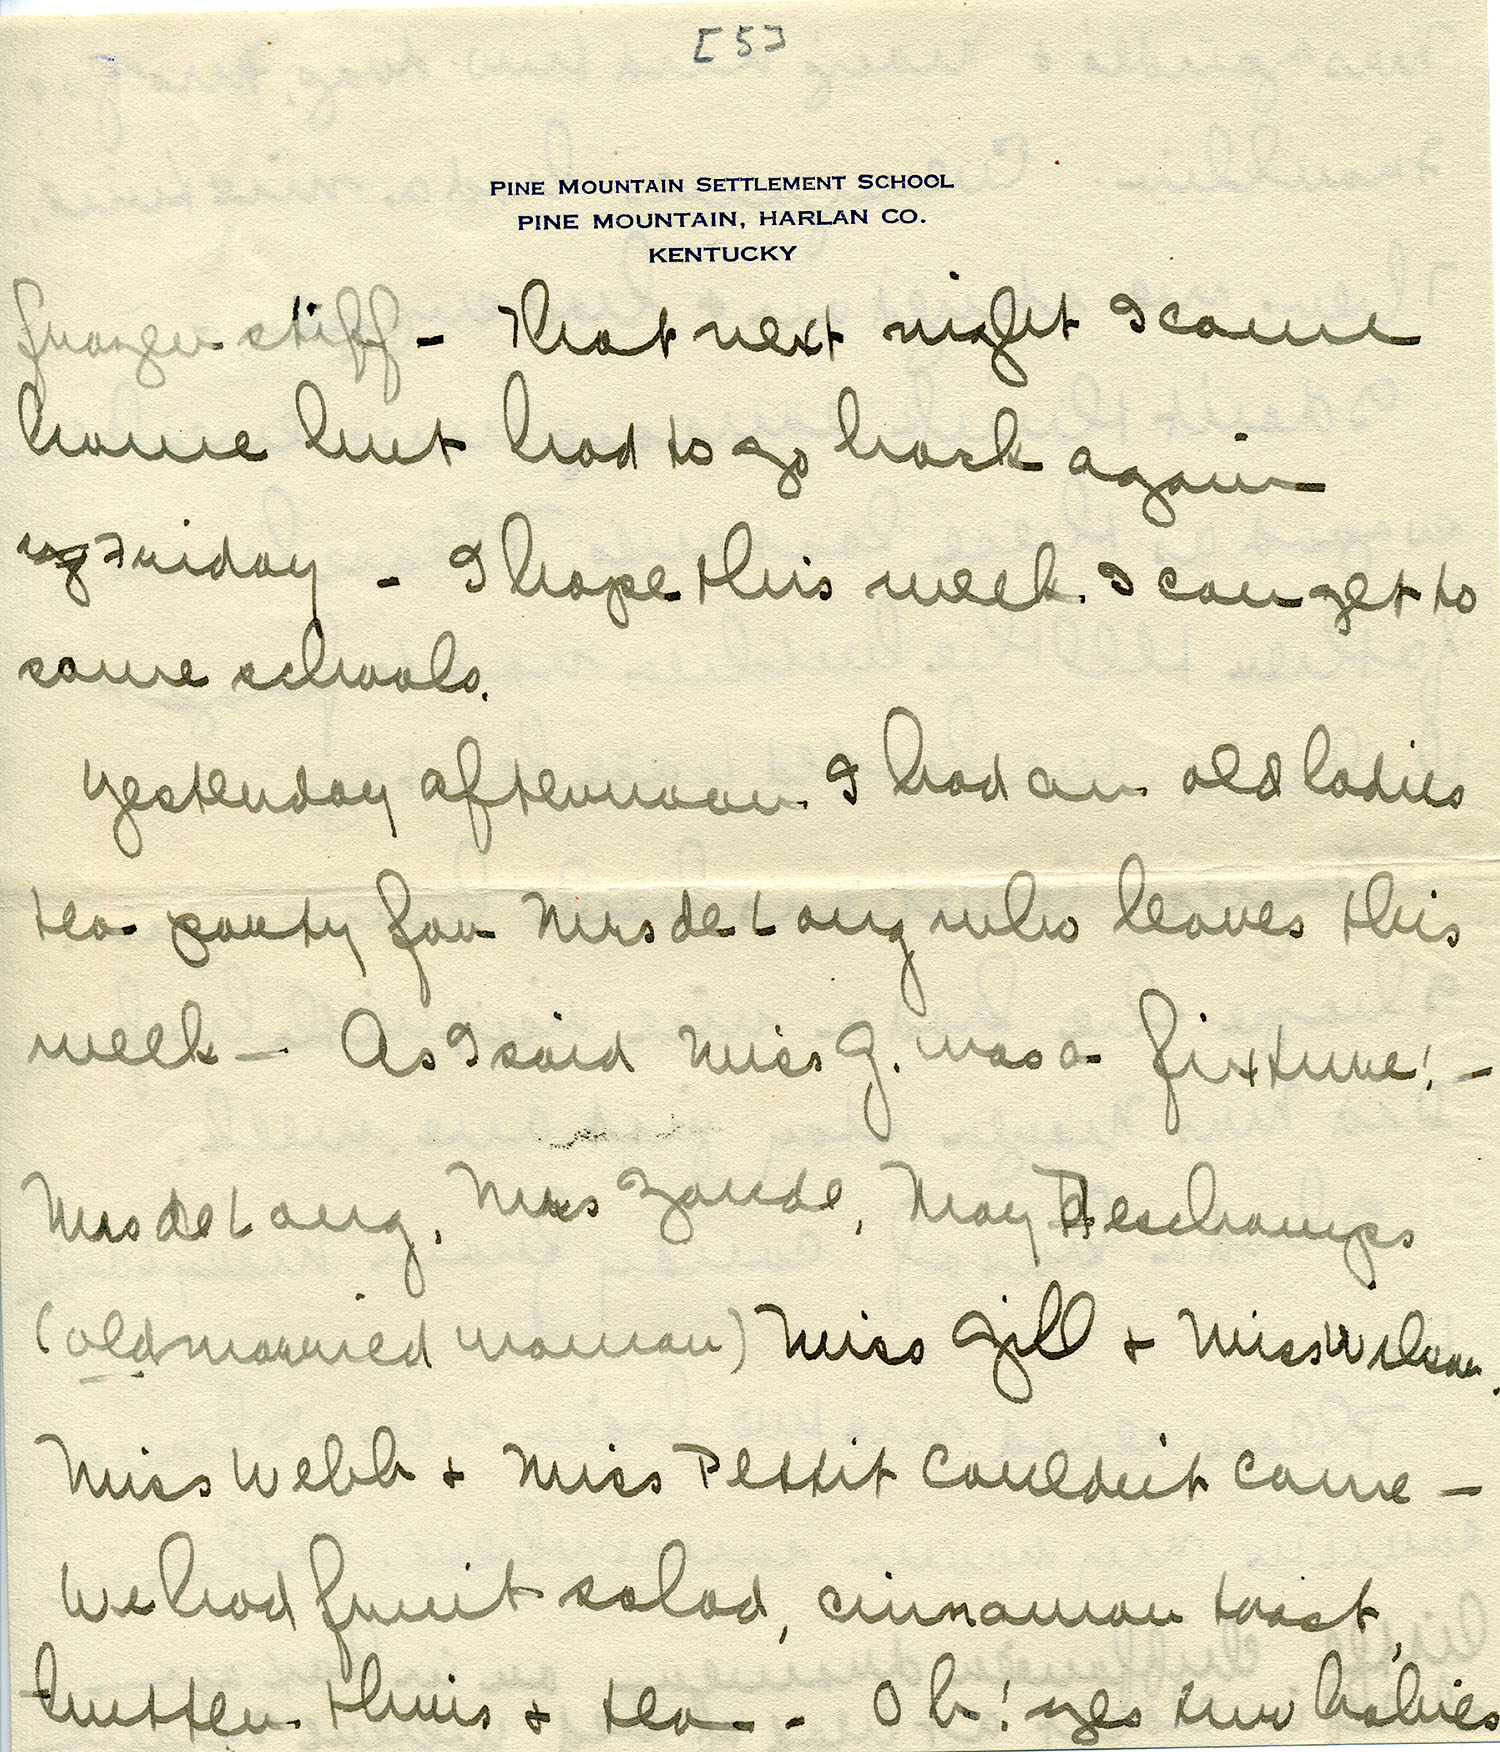 [5]
PINE MOUNTAIN SETTLEMENT SCHOOL
PINE MOUNTAIN, HARLAN CO.
KENTUCKY
frozen stiff - That next night I came
home but had to go back again
Friday - I hope this week I can get to
some schools.
Yesterday afternoon I had an old ladies
tea party for Mrs de Long who leaves this
week - As I said Miss G. was a fixture! -
Mrs de Long, Mrs Zande, May Deschamps
(old married woman) Miss Gill & Miss Wilson.
Miss Webb & Miss Pettit couldn't come -
We had fruit salad, cinnamon toast,
butter thins & tea - Oh! yes two babies